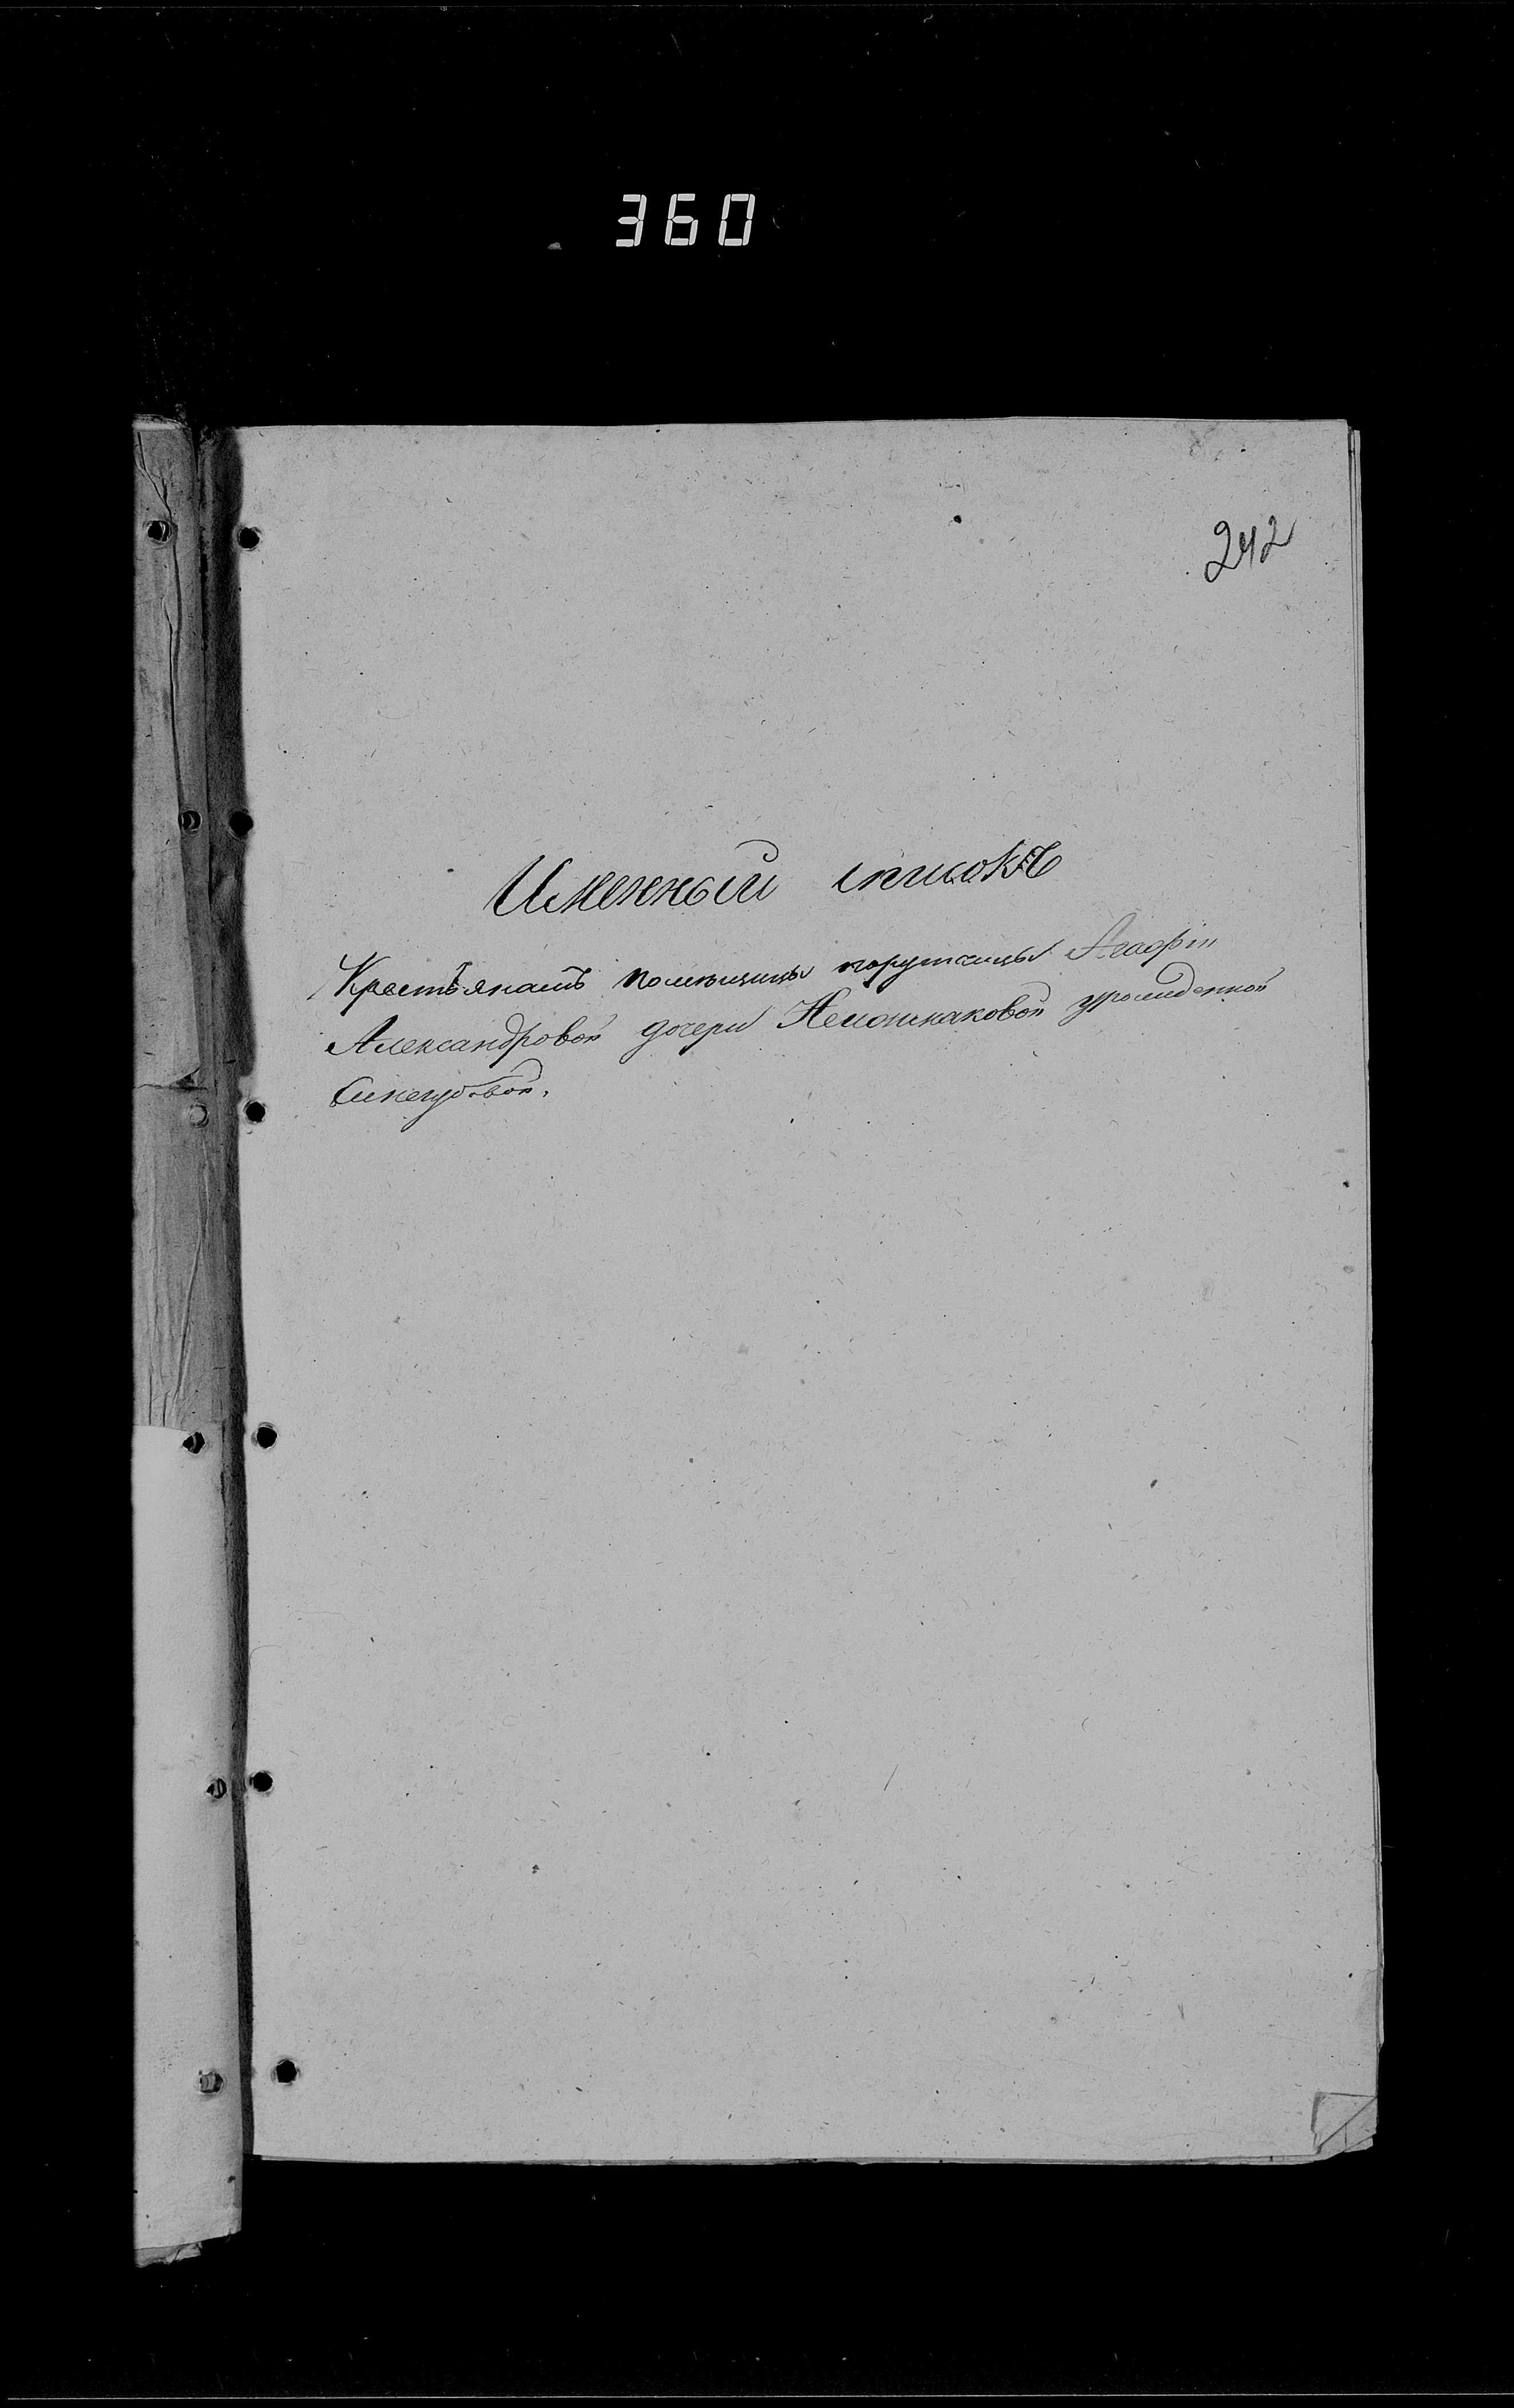 360
242
Именный списокъ
Крестьянамъ помѣщицы порутчицы Агафіи
Александровой дочери урожденной
Синегубовой.